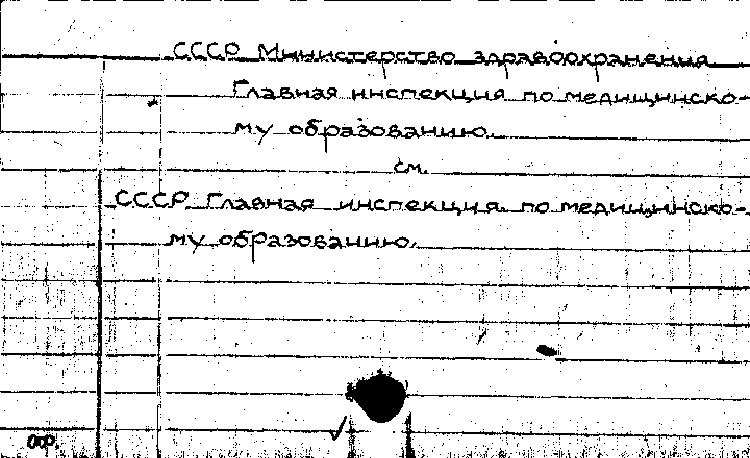 СССР Министерство здравоохранения.
Главная инспекция по медицинско-
му образованию.
см.
СССР Главная инспекция по медицинско-
му образованию.